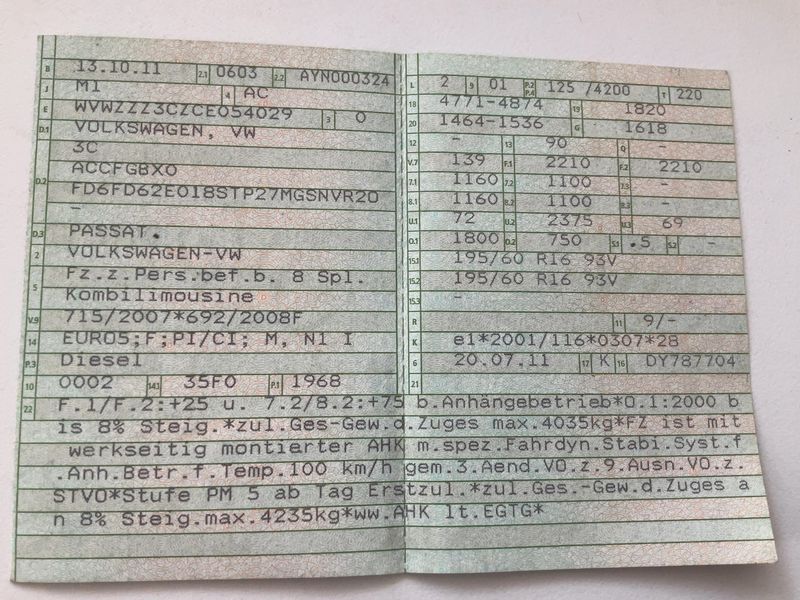 B 13.10.11 2.1 0603 2.2 AYN000324
J M1 4 AC
E WVWZZZ3CZCE054029 3 0
D.1 VOLKSWAGEN, VW
3C
D.2 ACCFGBX0
FD6FD62E018STP27MGSNVR20
-
D.3 PASSAT.
2 VOLKSWAGEN-VW
5 Fz.z.Pers.bef.b. 8 Spl.
Kombilimousine
V.9 715/2007*692/2008F
14 EURO5;F;PI/CI; M, N1 I
P.3 Diesel
10 0002 14.1 35F0 P.1 1968
L 2 9 01 P.2 P.4 125 /4200 T 220
18 4771-4874 19 1820
20 1464-1536 G 1618
12 - 13 90 Q -
V.7 139 F.1 2210 F.2 2210
7.1 1160 7.2 1100 7.3 -
8.1 1160 8.2 1100 8.3 -
U.1 72 U.2 2375 U.3 69
O.1 1800 O.2 750 S.1 .5 S.2 -
15.1 195/60 R16 93V
15.2 195/60 R16 93V
15.3 -
R 11 9/-
K e1*2001/116*0307*28
6 20.07.11 17 K 16 DY787704
21
22 F.1/F.2:+25 u. 7.2/8.2:+75 b.Anhängebetrieb*O.1:2000 b
is 8% Steig.*zul.Ges-Gew.d.Zuges max.4035kg*FZ ist mit
werkseitig montierter AHK m.spez.Fahrdyn.Stabi.Syst.f
.Anh.Betr.f.Temp.100 km/h gem.3.Aend.VO.z.9.Ausn.VO.z.
STVO*Stufe PM 5 ab Tag Erstzul.*zul.Ges.-Gew.d.Zuges a
n 8% Steig.max.4235kg*ww.AHK lt.EGTG*